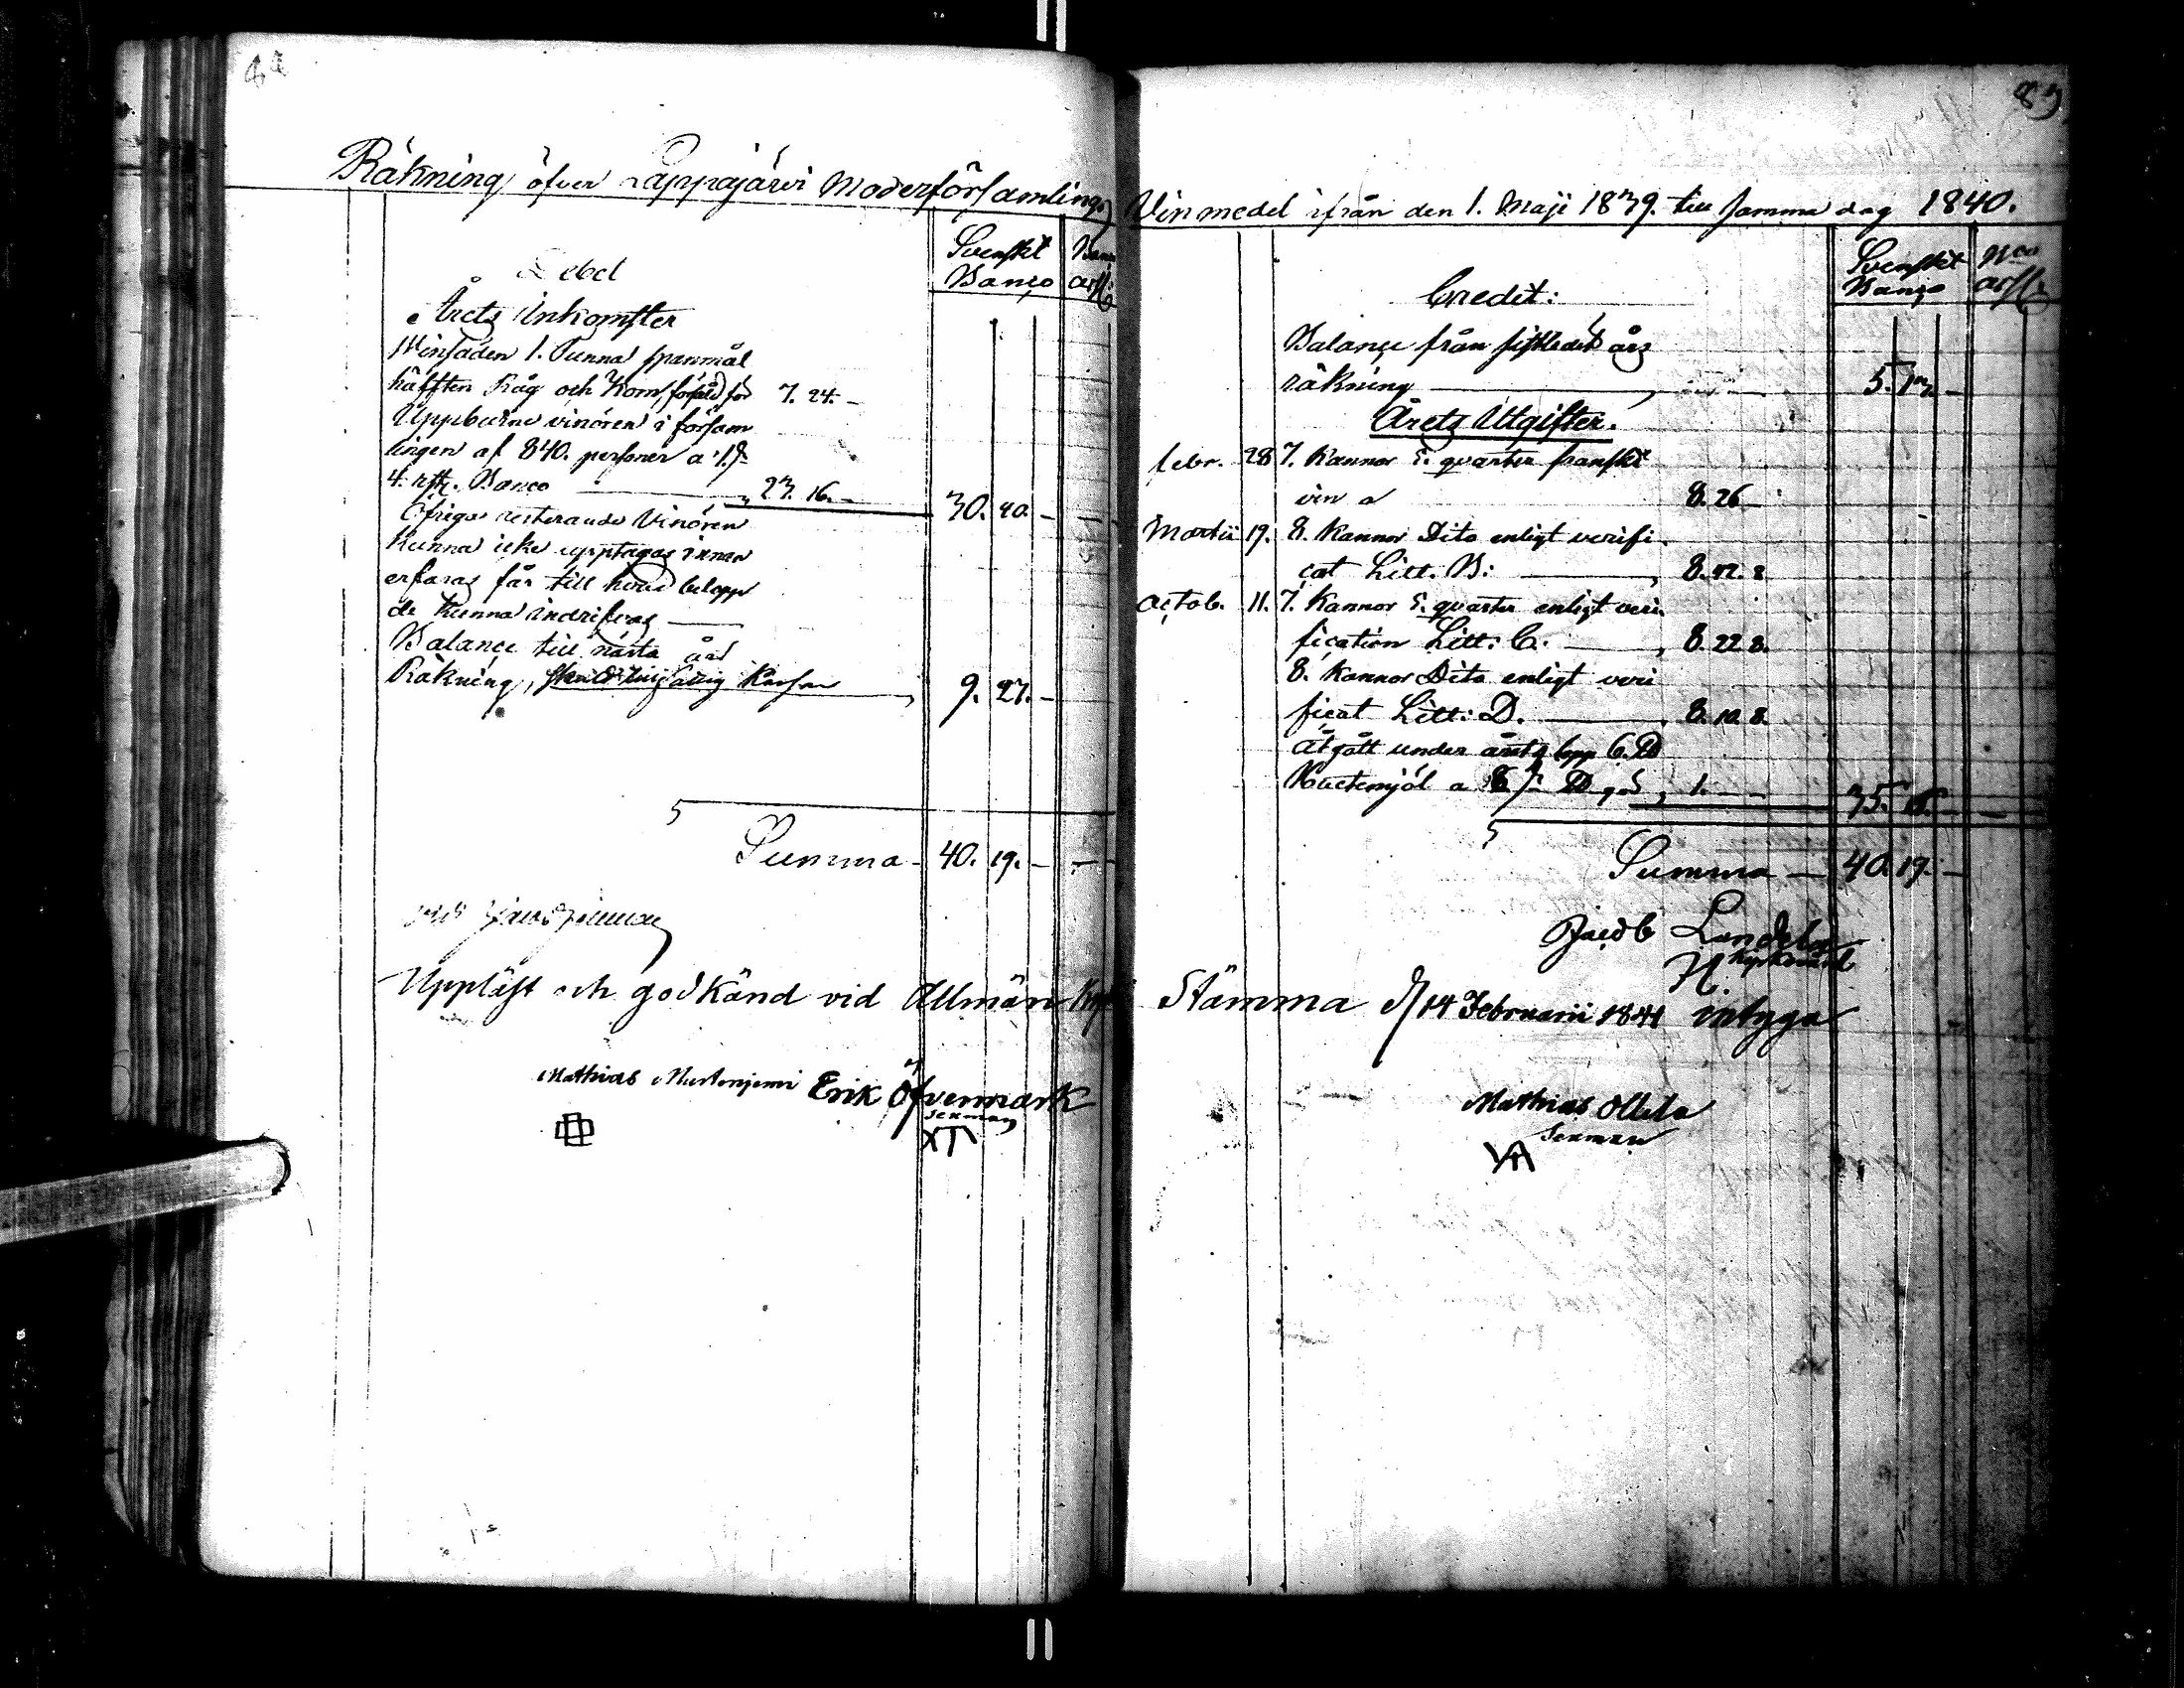 Räkning öfver Lappajärvi Moderförsamlings
Debet
Svenskt Banço
Årets Inkomster
Winsäden 1. Tunna spanmål
hälften Råg och Korn, försåld för 7. 24. –
Uppburne vinören i församlingen af 840. personer a 1. ß
4. rst. Banco – 23. 16. – 30. 40. –
Öfriga resterande Vinören
kunna icke upptagas innan
erfaras får till hvad belopp
de kunna indrifvas –
Balançe till nästa års
Räkning, Kassan 9. 27. –
Summa – 40. 19. –
Uppläst och godkänd vid Allmän
Mathias Erik Öfvermark
Sexman
83
Vinmedel ifrån den 1. Maji 1839. till samma dag 1840.
Credit:
Svenskt Banço
Balançe från sistledet års
räkning – 5. 13. –
Årets Utgifter.
febr. 28 7. Kannor 5. quarter franskt
vin a 8. 26
Martii 19. 8. Kannor Dito enligt verifi-
cat Litt. B: – 8. 42. 8
Octob. 11. 7. Kannor 5. quarter enligt veri-
fication Litt: C. – 8. 22 8.
8. Kannor Dito enligt veri
ficat Litt: D. – 8. 10 8.
Åtgått under årets lopp 6. ℔
a 8 ß ℔ 1. – – 35.
Summa – 40. 19. –
Jacob
Kyrkvärd
Stämma d. 14 Februarii 1841 intyga
Mathias Ollila
Sexman